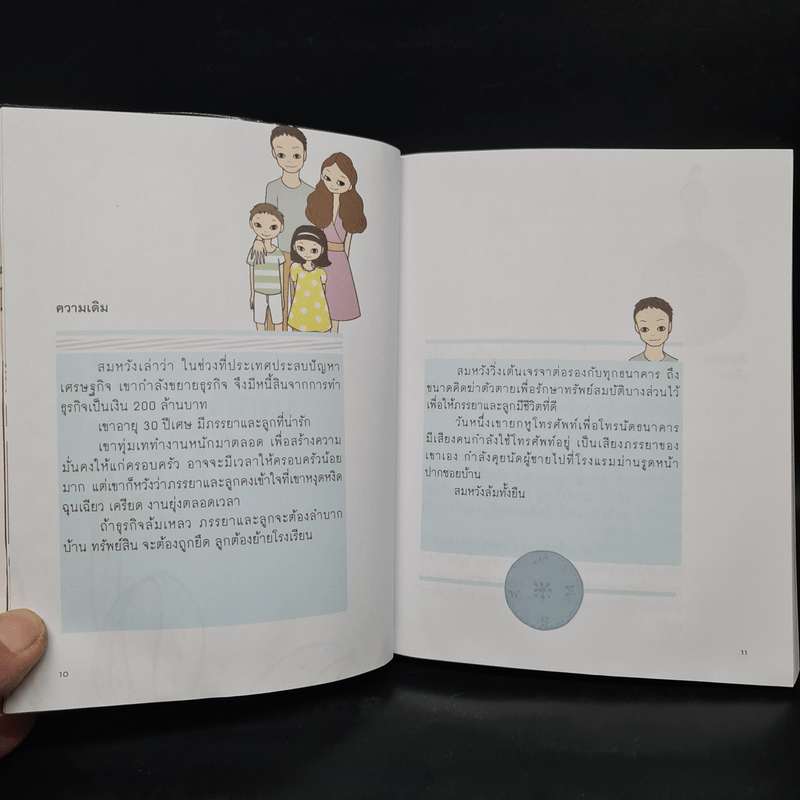 ความเดิม
สมหวังเล่าว่า ในช่วงที่ประเทศประสบปัญหา
เศรษฐกิจ เขากำลังขยายธุรกิจ จึงมีหนี้สินจากการทำ
ธุรกิจเป็นเงิน 200 ล้านบาท
เขาอายุ 30 ปีเศษ มีภรรยาและลูกที่น่ารัก
เขาทุ่มเททำงานหนักมาตลอด เพื่อสร้างความ
มั่นคงให้แก่ครอบครัว อาจจะมีเวลาให้ครอบครัวน้อย
มาก แต่เขาก็หวังว่าภรรยาและลูกคงเข้าใจที่เขาหงุดหงิด
ฉุนเฉียว เครียด งานยุ่งตลอดเวลา
ถ้าธุรกิจล้มเหลว ภรรยาและลูกจะต้องลำบาก
บ้าน ทรัพย์สิน จะต้องถูกยึด ลูกต้องย้ายโรงเรียน
10
สมหวังวิ่งเต้นเจรจาต่อรองกับทุกธนาคาร ถึง
ขนาดคิดฆ่าตัวตายเพื่อรักษาทรัพย์สมบัติบางส่วนไว้
เพื่อให้ภรรยาและลูกมีชีวิตที่ดี
วันหนึ่งเขายกหูโทรศัพท์เพื่อโทรนัดธนาคาร
มีเสียงคนกำลังใช้โทรศัพท์อยู่ เป็นเสียงภรรยาของ
เขาเอง กำลังคุยนัดผู้ชายไปที่โรงแรมม่านรูดหน้า
ปากซอยบ้าน
สมหวังล้มทั้งยืน
11